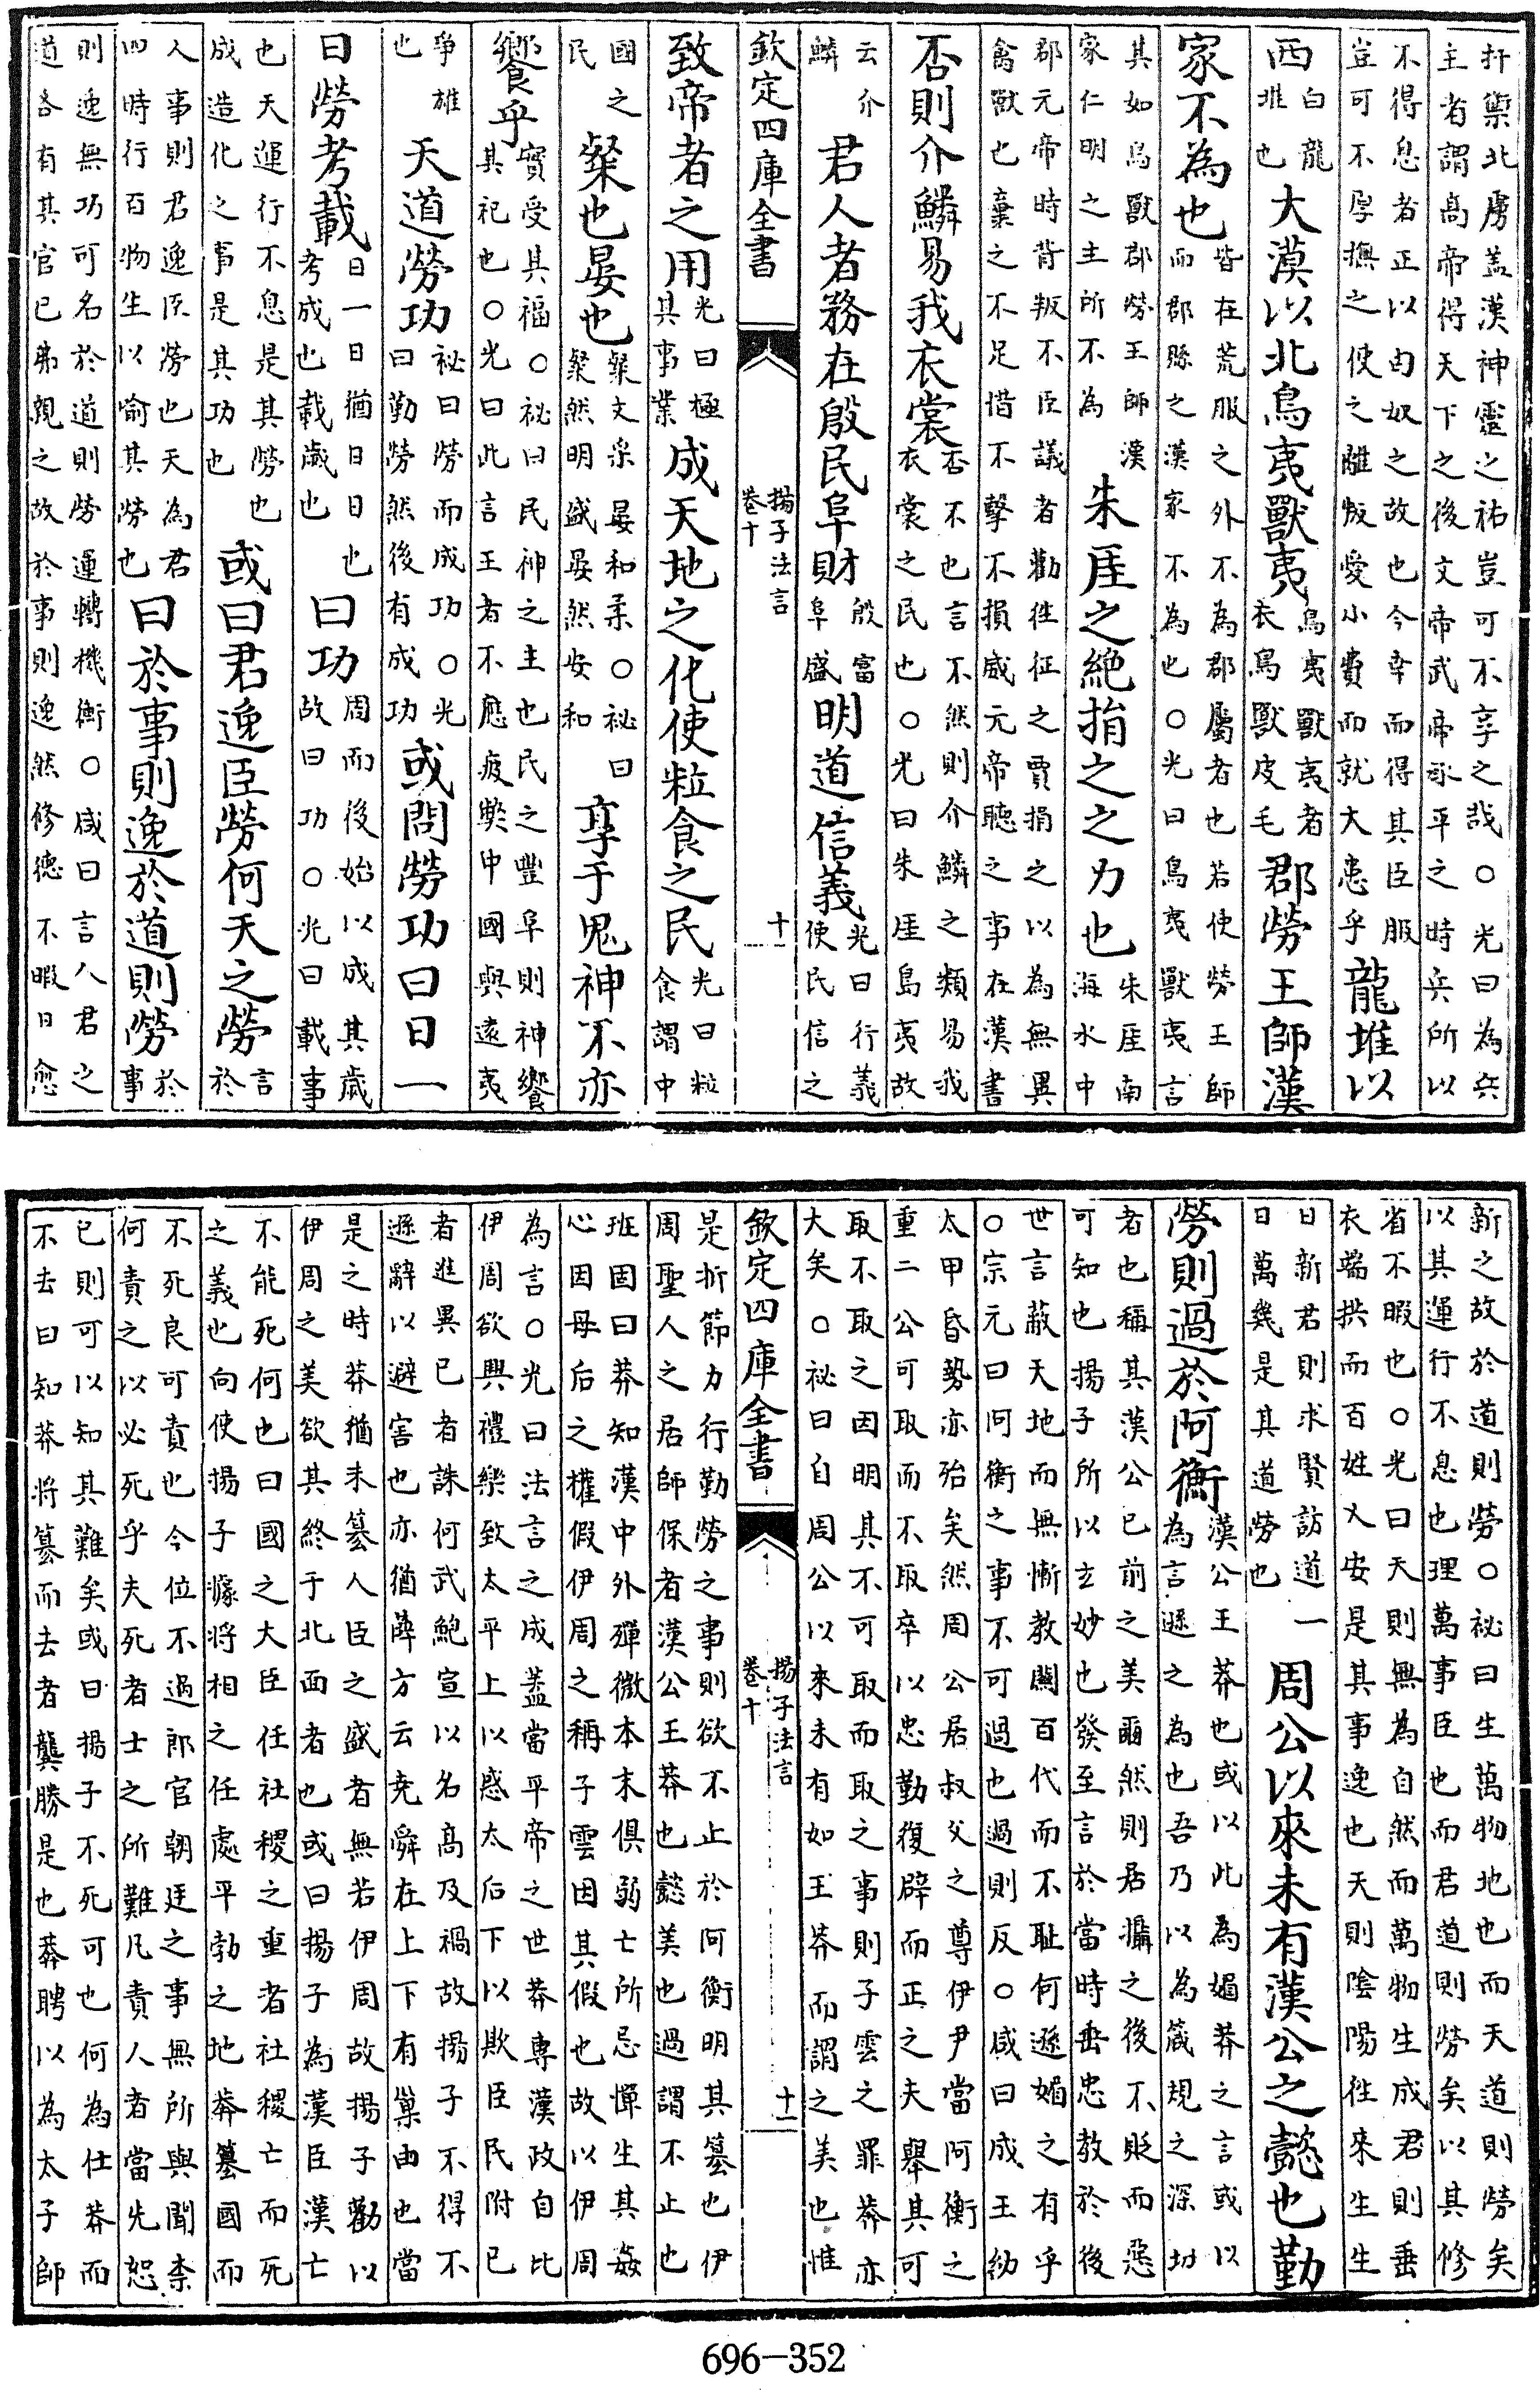 扞禦北虜蓋漢神靈之祐豈可不享之哉○光曰為兵
主者謂高帝得天下之後文帝武帝承平之時兵所以
不得息者正以匈奴之故也今幸而得其臣服
豈可不厚撫之使之離叛愛小費而就大患乎龍堆以
西白龍堆也大漠以北鳥夷獸夷鳥夷獸夷者衣鳥獸皮毛郡勞王師漢
家不為也皆在荒服之外不為郡屬者也若使勞王師而郡縣之漢家不為也○光曰鳥夷獸夷言
其如鳥獸郡勞王師漢家仁明之主所不為朱厓之絶捐之之力也朱厓南海水中
郡元帝時背叛不臣議者勸往征之賈捐之以為無異
禽獸也棄之不足惜不擊不損威元帝聽之事在漢書
否則介鱗易我衣裳否不也言不然則介鱗之類易我衣裳之民也○光曰朱厓島夷故
云介鱗君人者務在殷民阜財殷富阜盛明道信義光曰行義使民信之
欽定四庫全書 揚子法言 卷十 十
致帝者之用光曰極其事業成天地之化使粒食之民光曰粒食謂中
國之民粲也晏也粲文采晏和柔○祕曰粲然明盛晏然安和享于鬼神不亦
饗乎實受其福○祕曰民神之主也民之豐阜則神饗其祀也○光曰此言王者不應疲獘中國與遠夷
爭雄也天道勞功祕曰勞而成功○光曰勤勞然後有成功或問勞功曰日一
日勞考載日一日猶日日也考成也載歲也曰功周而後始以成其歲故曰功○光曰載事
也天運行不息是其勞也成造化之事是其功也或曰君逸臣勞何天之勞言於
人事則君逸臣勞也天為君四時行百物生以喻其勞也曰於事則逸於道則勞於事
則逸無功可名於道則勞運轉機衡○咸曰言人君之
道各有其官已弗親之故於事則逸然修德不暇日愈
新之故於道則勞○祕曰生萬物地也而天道則勞矣
以其運行不息也理萬事臣也而君道則勞矣以其修
省不暇也○光曰天則無為自然而萬物生成君則垂
衣端拱而百姓乂安是其事逸也天則陰陽往來生生
日新君則求賢訪道一日萬幾是其道勞也周公以來未有漢公之懿也勤
勞則過於阿衡漢公王莽也或以此為媚莽之言或以為言遜之為也吾乃以為箴規之深切
者也稱其漢公已前之美爾然則居攝之後不貶而惡
可知也揚子所以玄妙也發至言於當時垂忠教於後
世言蔽天地而無慚教關百代而不恥何遜媚之有乎
○宗元曰阿衡之事不可過也過則反○咸曰成王幼
太甲昏勢亦殆矣然周公居叔父之尊伊尹當阿衡之
重二公可取而不取卒以忠勤復辟而正之夫舉其可
取不取之因明其不可取而取之事則子雲之罪莽亦
大矣○祕曰自周公以來未有如王莽而謂之美也惟
欽定四庫全書 揚子法言 卷十 十一
是折節力行勤勞之事則欲不止於阿衡明其簒也伊
周聖人之居師保者漢公王莽也懿美也過謂不止也
班固曰莽知漢中外殫微本末俱弱亡所忌憚生其姦
心因母后之權假伊周之稱子雲因其假也故以伊周
為言○光曰法言之成蓋當平帝之世莽專漢政自比
伊周欲興禮樂致太平上以惑太后下以欺臣民附已
者進異已者誅何武鮑宣以名高及禍故揚子不得不
遜辭以避害也亦猶薛方云堯舜在上下有巢由也當
是之時莽猶未簒人臣之盛者無若伊周故揚子勸以
伊周之美欲其終于北面者也或曰揚子為漢臣漢亡
不能死何也曰國之大臣任社稷之重者社稷亡而死
之義也向使揚子據將相之任處平勃之地莽簒國而
不死良可責也今位不過郎官朝廷之事無所與聞柰
何責之以必死乎夫死者士之所難凡責人者當先恕
已則可以知其難矣或曰揚子不死可也何為仕莽而
不去曰知莽將簒而去者龔勝是也莽聘以為太子師
696-352